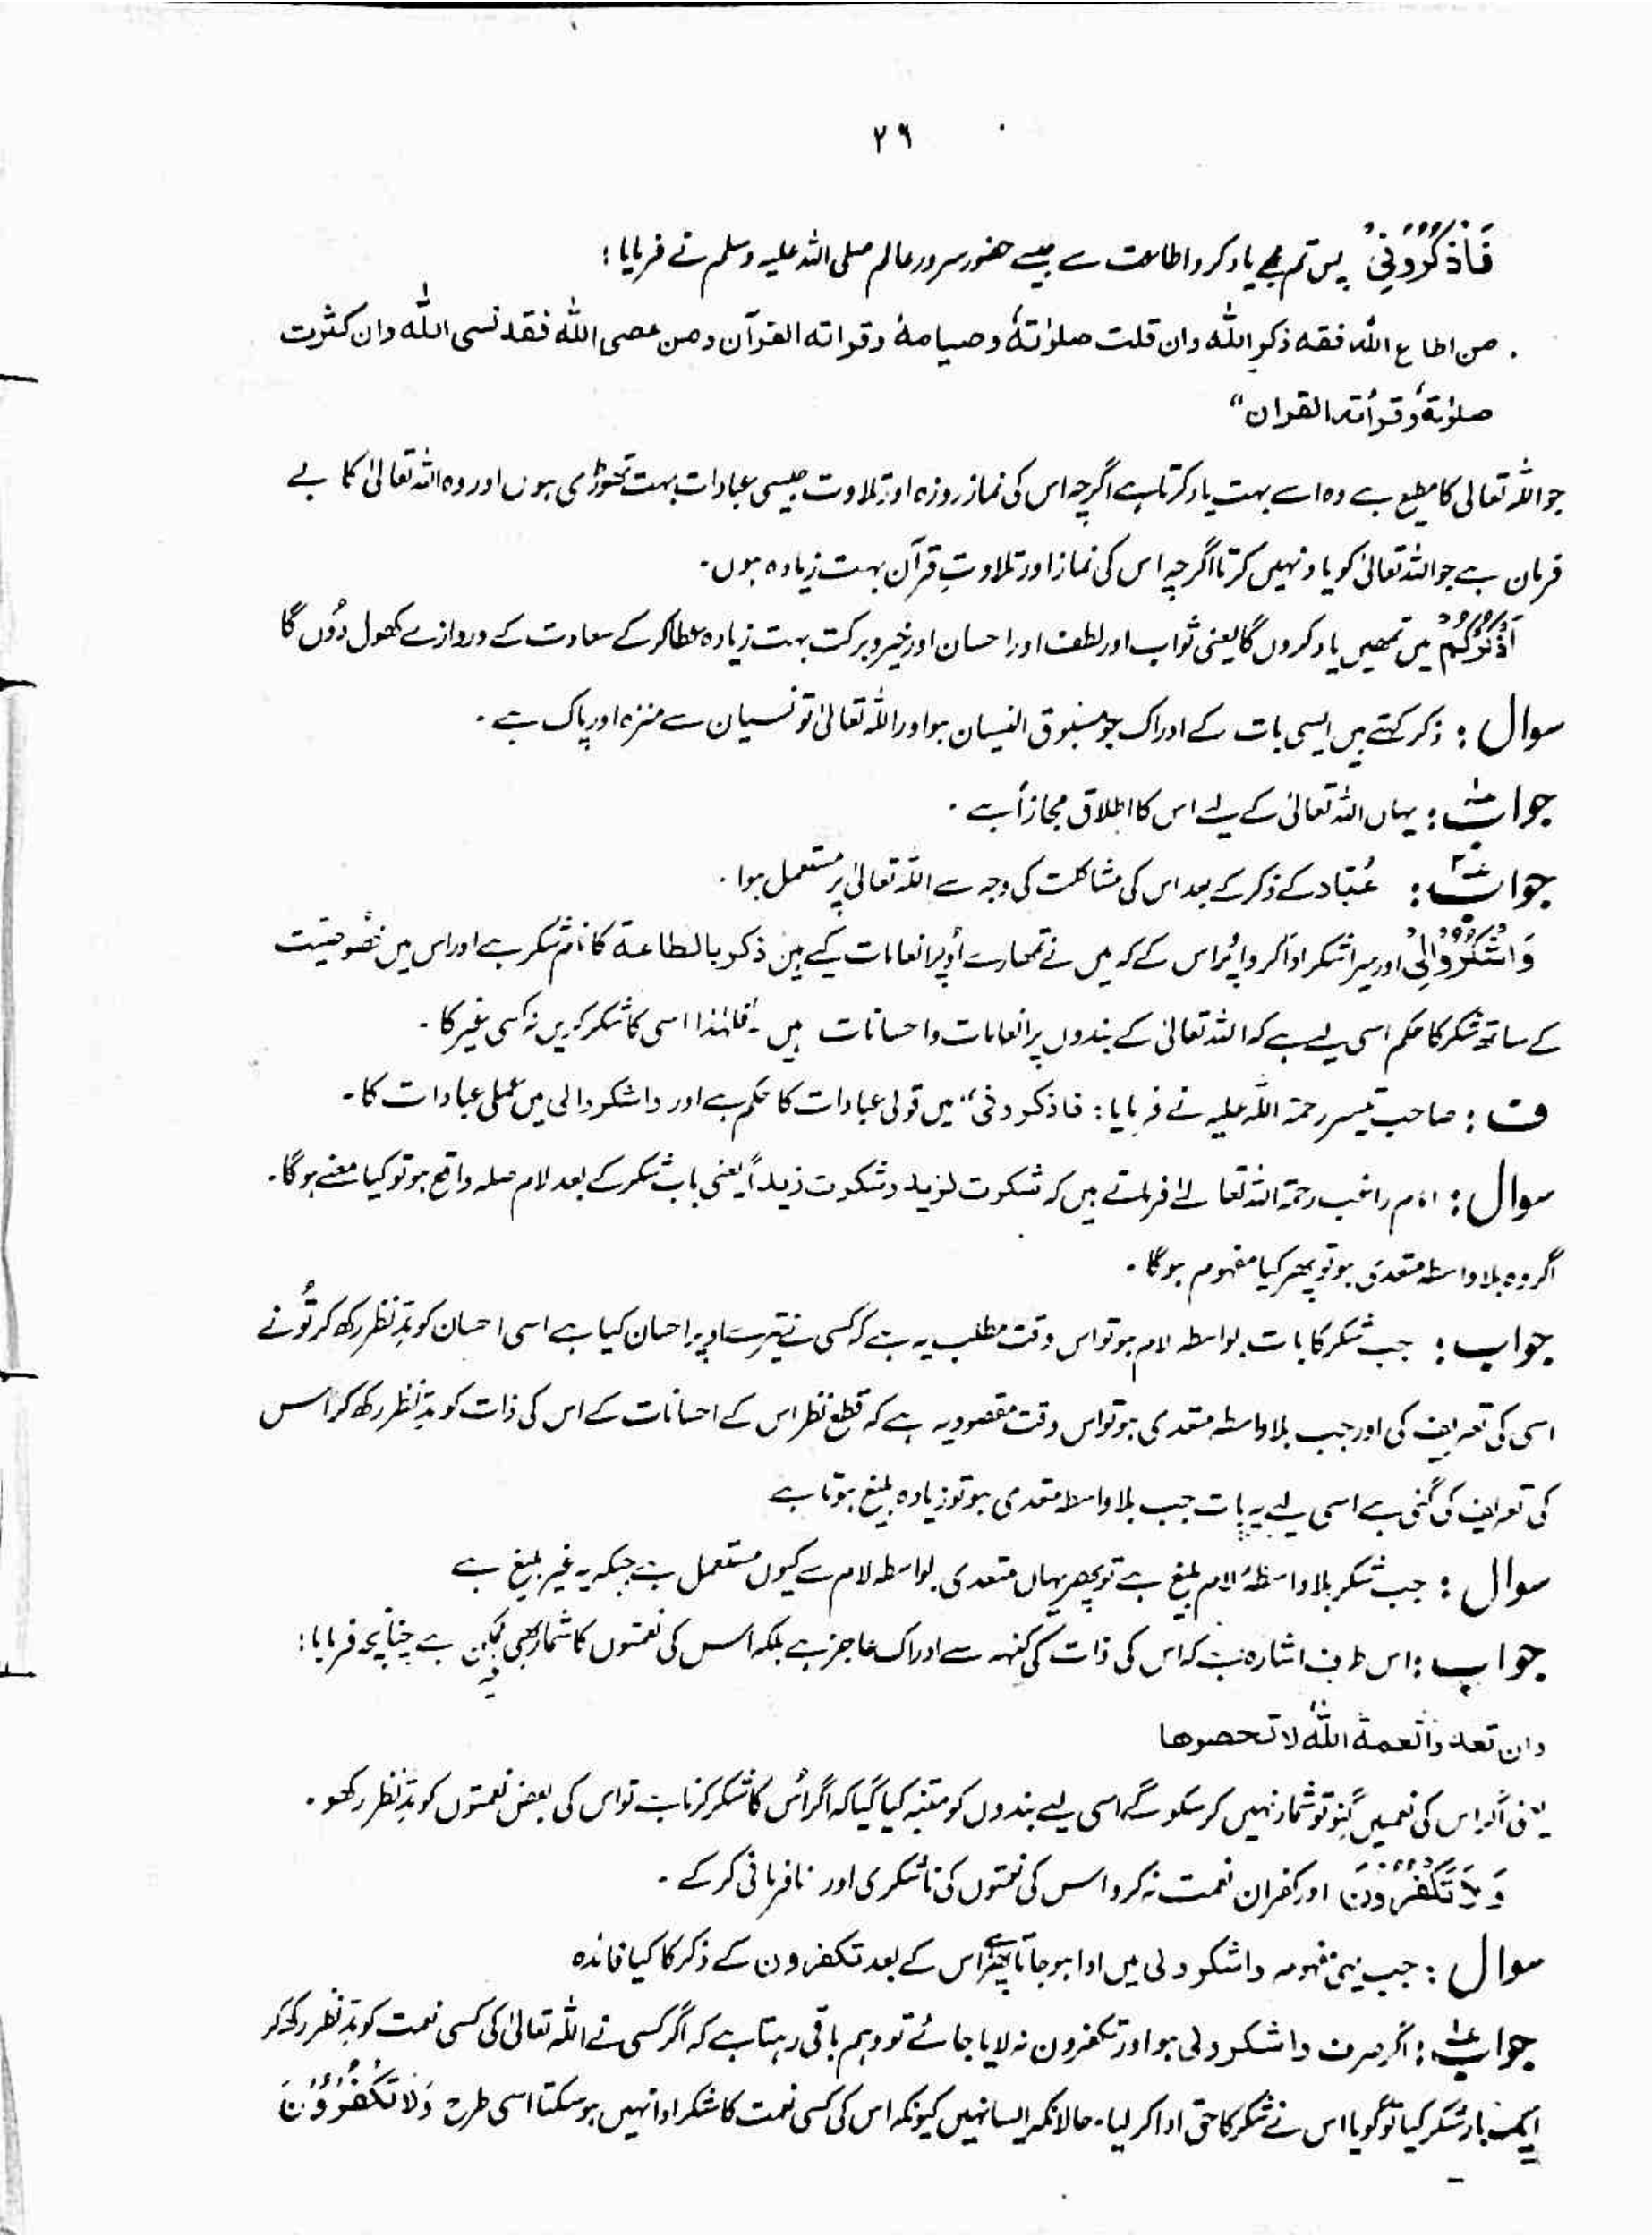 ۲۶
فَاذْكُرُوْنِیْ پس تم مجھے یاد کرو اطاعت سے جیسے حضور سرور عالم صلی اللہ علیہ وسلم نے فرمایا :
من اطاع اللہ فقد ذکر اللہ وان قلت صلوٰتہٗ وصیامہٗ وقراتہ القرآن ومن عصی اللہ فقد نسی اللہ وان کثرت
صلوٰتہٗ وقرأتہ القران"
جو اللہ تعالی کا مطیع ہے وہ اسے بہت یاد کرتا ہے اگرچہ اس کی نماز روزہ اور تلاوت جیسی عبادات بہت تھوڑی ہوں اور وہ اللہ تعالیٰ کا بے
فرمان ہے جو اللہ تعالیٰ کو یاد نہیں کرتا اگرچہ اس کی نماز اور تلاوتِ قرآن بہت زیادہ ہوں۔
اَذْكُرْكُمْ میں تمھیں یاد کروں گا یعنی ثواب اور لطف اور احسان اور خیر و برکت بہت زیادہ عطا کر کے سعادت کے دروازے کھول دُوں گا
سوال : ذکر کہتے ہیں ایسی بات کے ادراک جو مسبوق النسیان ہو اور اللہ تعالیٰ تو نسیان سے منزہ اور پاک ہے ۔
جواب ۱ : یہاں اللہ تعالیٰ کے لیے اس کا اطلاق مجازاً ہے ۔
جواب ۲ : عُبّاد کے ذکر کے بعد اس کی مشاکلت کی وجہ سے اللہ تعالیٰ پر مستعمل ہوا ۔
وَاشْكُرُوْا لِیْ اور میرا شکر ادا کرو اُوپر اس کے کہ میں نے تمھارے اُوپر انعامات کیے ہیں ذکر بالطاعۃ کا نام شکر ہے اور اس میں خصُوصیّت
کے ساتھ شکر کا حکم اسی لیے ہے کہ اللہ تعالیٰ کے بندوں پر انعامات و احسانات ہیں ۔ فلہٰذا اسی کا شکر کریں نہ کسی غیر کا ۔
ف : صاحب تیسر رحمۃ اللہ علیہ نے فرمایا : فاذکرونی" میں قولی عبادات کا حکم ہے اور واشکروالی میں عملی عبادات کا ۔
سوال : امام راغب رحمۃ اللہ تعالےٰ فرماتے ہیں کہ شکرت لزید وشکرت زیداً یعنی باب شکر کے بعد لام صلہ واقع ہو تو کیا معنے ہو گا ۔
اگر وہ بلا واسطہ متعدی ہو تو پھر کیا مفہوم ہو گا ۔
جواب : جب شکر کا بات بواسطہ لام ہو تو اس وقت مطلب یہ ہے کہ کسی نے تیرے اوپر احسان کیا ہے اسی احسان کو مدّ نظر رکھ کر تُو نے
اسی کی تعریف کی اور جب بلا واسطہ متعدی ہو تو اس وقت مقصود یہ ہے کہ قطع نظر اس کے احسانات کے اس کی ذات کو مدّ نظر رکھ کر اس
کی تعریف کی گئی ہے اسی لیے یہ بات جب بلا واسطہ متعدی ہو تو زیادہ بلیغ ہوتا ہے
سوال : جب شکر بلا واسطۂ لام بلیغ ہے تو پھر یہاں متعدی بواسطہ لام سے کیوں مستعمل ہے جبکہ یہ غیر بلیغ ہے
جواب : اس طرف اشارہ ہے کہ اس کی ذات کی کنہہ سے ادراک عاجز ہے بلکہ اس کی نعمتوں کا شمار بھی غیر ممکن ہے چنانچہ فرمایا :
وان تعدوا نعمۃ اللہ لا تحصوھا
یعنی اگر اس کی نعمتیں گنو تو شمار نہیں کر سکو گے اسی لیے بندوں کو متنبہ کیا گیا کہ اگر اُس کا شکر کرنا ہے تو اس کی بعض نعمتوں کو مدّ نظر رکھو ۔
وَلَا تَكْفُرُوْنِ اور کفران نعمت نہ کرو اس کی نعمتوں کی ناشکری اور نافرمانی کر کے ۔
سوال : جب یہی مفہوم واشکرولی میں ادا ہو جاتا ہے پھر اس کے بعد تکفرون کے ذکر کا کیا فائدہ
جواب ۱ : اگر صرف واشکرولی ہو اور تکفرون نہ لایا جائے تو وہم باقی رہتا ہے کہ اگر کسی نے اللہ تعالیٰ کی کسی نعمت کو مدّ نظر رکھ کر
ایک بار شکر کیا تو گویا اس نے شکر کا حق ادا کر لیا ۔ حالانکہ ایسا نہیں کیونکہ اس کی کسی نعمت کا شکر ادا نہیں ہو سکتا اسی طرح وَلَا تَكْفُرُوْنَ